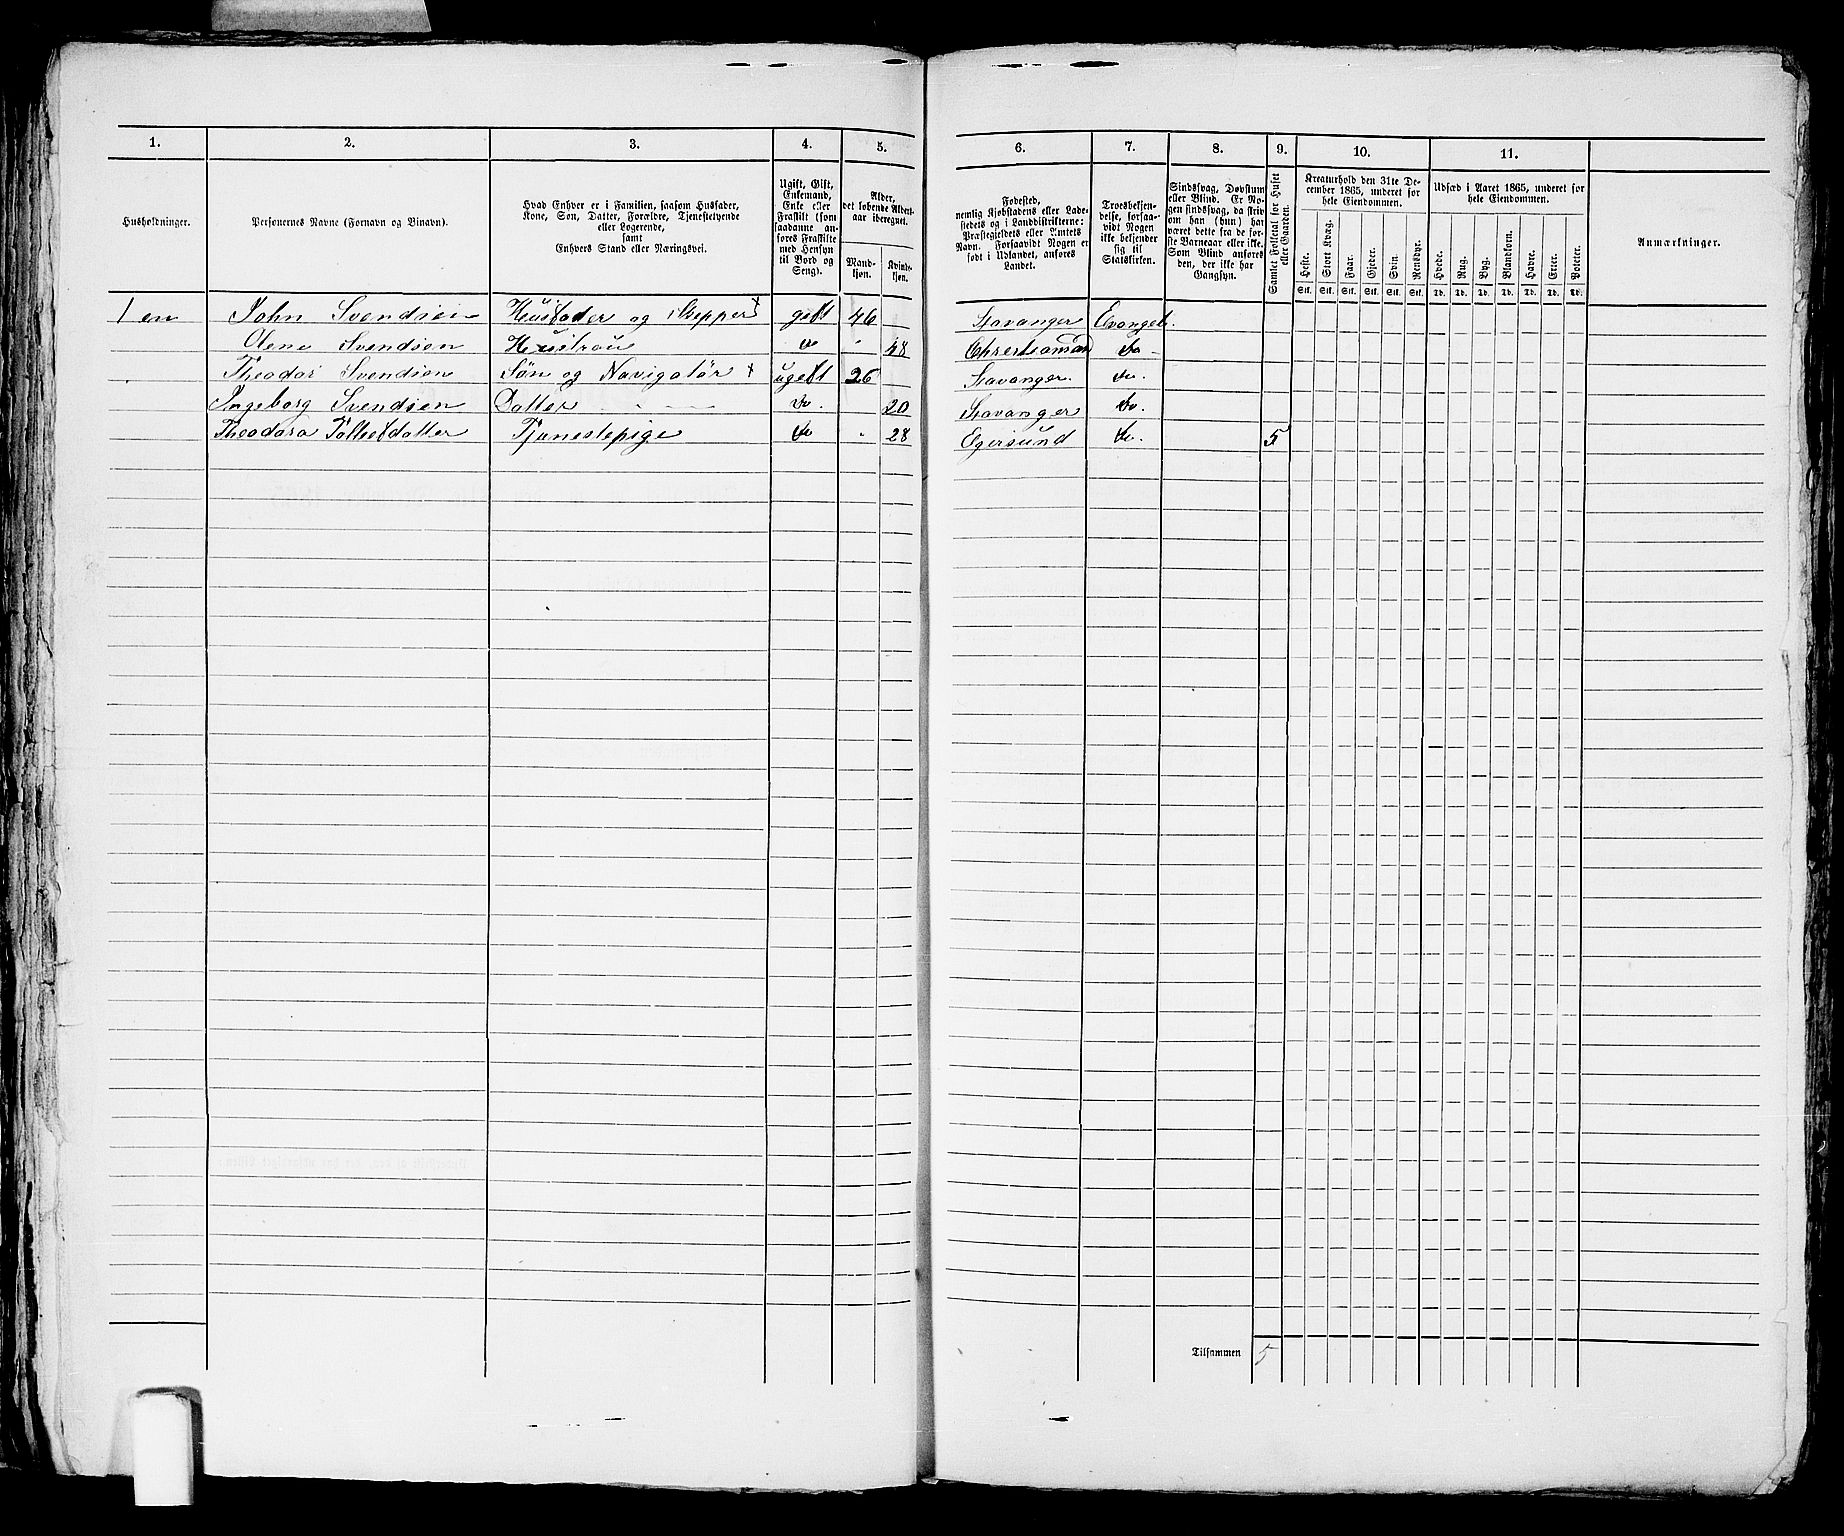 1. 2. 3. 4. 5. 6. 7. 8. 9. 10. 11.
Husholdninger.
Personernes Navne (Fornavn og Binavn).
Hvad Enhver er i Familien, saasom Husfader,
Kone, Søn, Datter, Forældre, Tjenestetyende
eller Logerende,
samt
Enhvers Stand eller Næringsvei.
Ugift, Gift,
Enkemand,
Enke eller
Fraskilt (som
saadanne an-
føres Fraskilte
med Hensyn
til Bord og
Seng).
Alder,
det løbende Alders-
aar iberegnet.
Mand-
kjøn.
Kvinde-
kjøn.
Fødested,
nemlig Kjøbstadens eller Lade-
stedets og i Landdistrikterne:
Præstegjeldets eller Amtets
Navn. Forsaavidt Nogen er
født i Udlandet, anføres
Landet.
Troesbekjen-
delse, forsaa-
vidt Nogen
ikke bekjender
sig til
Statskirken.
Sindssvag, Døvstum
eller Blind. Er No-
gen sindssvag, da skriv
om han (hun) har
været dette fra de før-
ste Barneaar eller ikke.
Som Blind anføres
den, der ikke har
Gangsyn.
Samlet Folketal for Huset
eller Gaarden.
Kreaturhold den 31te De-
cember 1865, underet for
hele Eiendommen.
Heste. Stort Kvæg. Faar. Gjeder. Svin. Rensdyr.
Stk. Stk. Stk. Stk. Stk. Stk.
Udsæd i Aaret 1865, underet for
hele Eiendommen.
Hvede. Rug. Byg. Blandkorn. Havre. Erter. Poteter.
Td. Td. Td. Td. Td. Td. Td.
Anmærkninger.
1 en John Svendsen Husfader og Skepper x gift 46 Stavanger Evangel.
Olene Svendsen Hustrou do - 48 Christiansand do -
Theodor Svendsen Søn og Navigatør x ugift 26 Stavanger. do.
Ingeborg Svendsen Datter do. 20 Stavanger do.
Theodora Tollefsdatter Tjenestepige do - 28 Egersund do. 5
Tilsammen 5